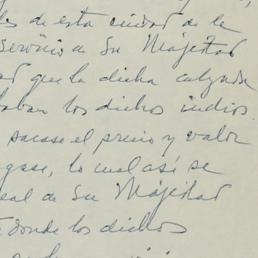 de esta ciudad de la
servicio de Su Majestad
que la dicha calzada
los dichos indios
sacase el precio y valor
lo cual así se
real de Su Majestad
donde los dichos